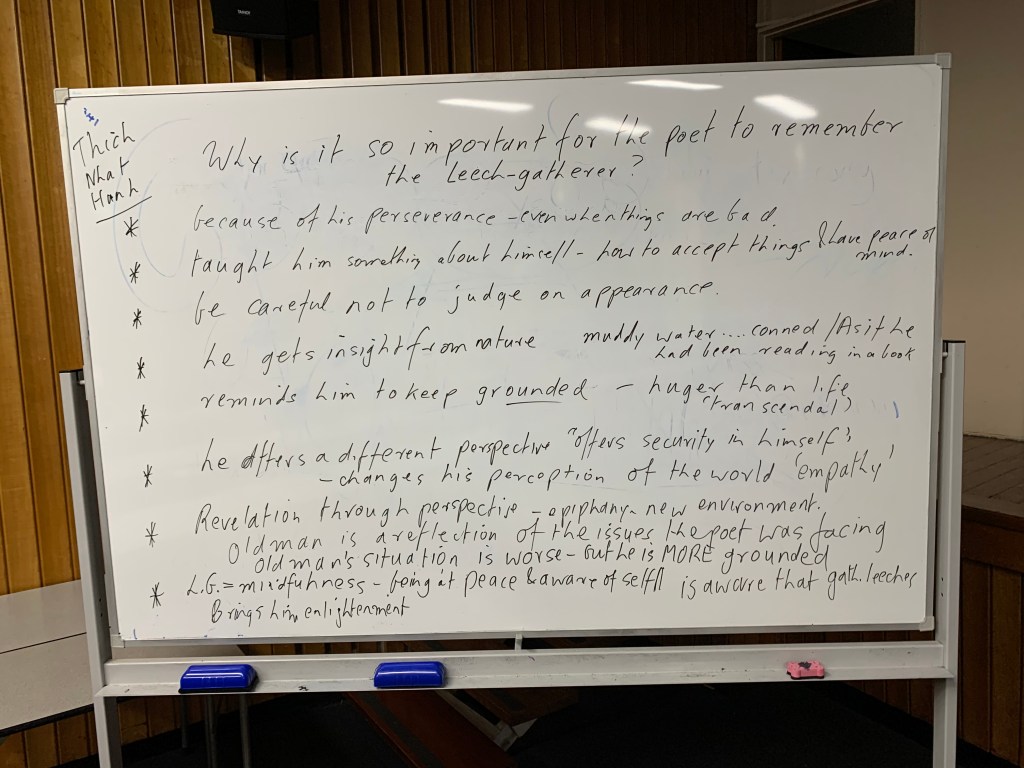 Thich
Nhat
Hanh
Why is it so important for the poet to remember
the Leech-gatherer?
* because of his perseverance - even when things are bad.
* taught him something about himself - how to accept things & have peace of
mind.
* be careful not to judge on appearance.
* he gets insight from nature muddy water .... conned / As if he
had been reading in a book
* reminds him to keep grounded - huger than life
(transcendal)
* he offers a different perspective "offers security in himself";
- changes his perception of the world 'empathy'
* Revelation through perspective - epiphany - new environment.
Old man is a reflection of the issues the poet was facing
old man's situation is worse - but he is MORE grounded
* L.G. = mindfulness - being at peace & aware of self is aware that gath. leeches
Brings him enlightenment